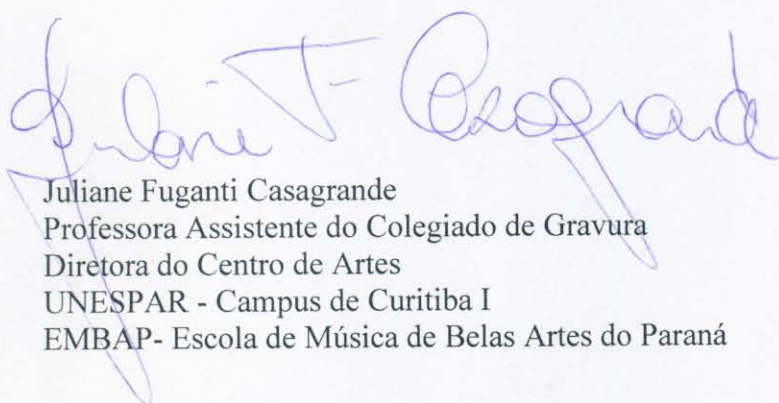 Juliane F Casagrande
Juliane Fuganti Casagrande
Professora Assistente do Colegiado de Gravura
Diretora do Centro de Artes
UNESPAR - Campus de Curitiba I
EMBAP- Escola de Música de Belas Artes do Paraná